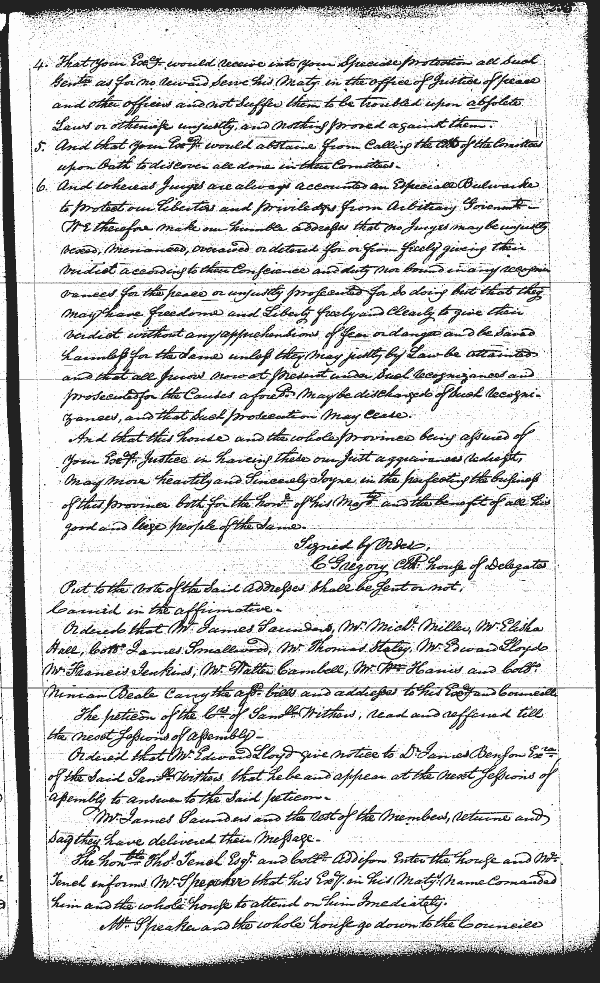 4. That your Exc.y would receive into your Speciall Protection all Such
Gent.n as for no reward Serve his Maty. in the office of Justice of peace
and other officers and not Suffer them to be troubled upon absolete
Laws or otherwise unjustly, and nothing proved against them.
5. And that your Exc.y would abstaine from Calling the of the Comittees
upon Oath to discover all done in their Comittees.
6. And whereas Juryes are always accounted an Especiall Bulwarke
to protect our Liberties and priviledges from Arbitrary Governmt.
We therefore make our humble addresses that no Juryes may be unjustly
vexed, menanced, overawed or detered for or from freely giving their
verdict according to their Conscience and duty nor bound in any recogni-
zances for the peace or unjustly prosecuted for So doing but that they
may have freedome and Liberty freely and Clearly to give their
verdict without any apprehensions of fear or danger and be Saved
harmless for the Same unless they may justly by Law be attainted
and that all Jurors now at present under Such recognizances and
prosecuted for the Causes aforesd. may be discharged of Such recogni-
zances, and that Such prosecution may Cease.
And that this house and the whole province being assured of
your Exc.y Justice in having these our Just aggreivances redrest,
may more heartily and Sincerely Joyne in the perfecting the business
of this province both for the honr. of his Majty. and the benefit of all his
good and liege people of the Same.
Signed by Order,
C Gregory Clk. house of Delegates
Put to the vote if the Said addresses Shall be Sent or not,
Carried in the affirmative.
Ordered that Mr. James Saunders, Mr. Michl. Miller, Mr. Elisha
Hall, Coll. James Smallwood, Mr. Thomas Staley, Mr. Edward Lloyd
Mr. Francis Jenkins, Mr. Walter Cambell, Mr. Wm. Harris and Coll.
Ninian Beale Carry the afd. bills and addresses to his Excy. and Councill
The peticon of the of Samll. Withers, read and reffered till
the next Sessions of assembly.
Ordered that Mr. Edward Lloyd give notice to Dr. James Benson Exr.
of the Said Samll. Withers that he be and appear at the next Sessions of
assembly to answer to the Said peticon.
Mr. James Saunders and the rest of the Members, returne and
Say they have delivered their Message.
The honble. Tho. Tench Esqr. and Coll. Addison Enter the house and Mr.
Tench informs Mr. Speaker that his Excy. in his Matys. Name Comanded
him and the whole house to attend on him Imediately.
Mr. Speaker and the whole house go down to the Councill